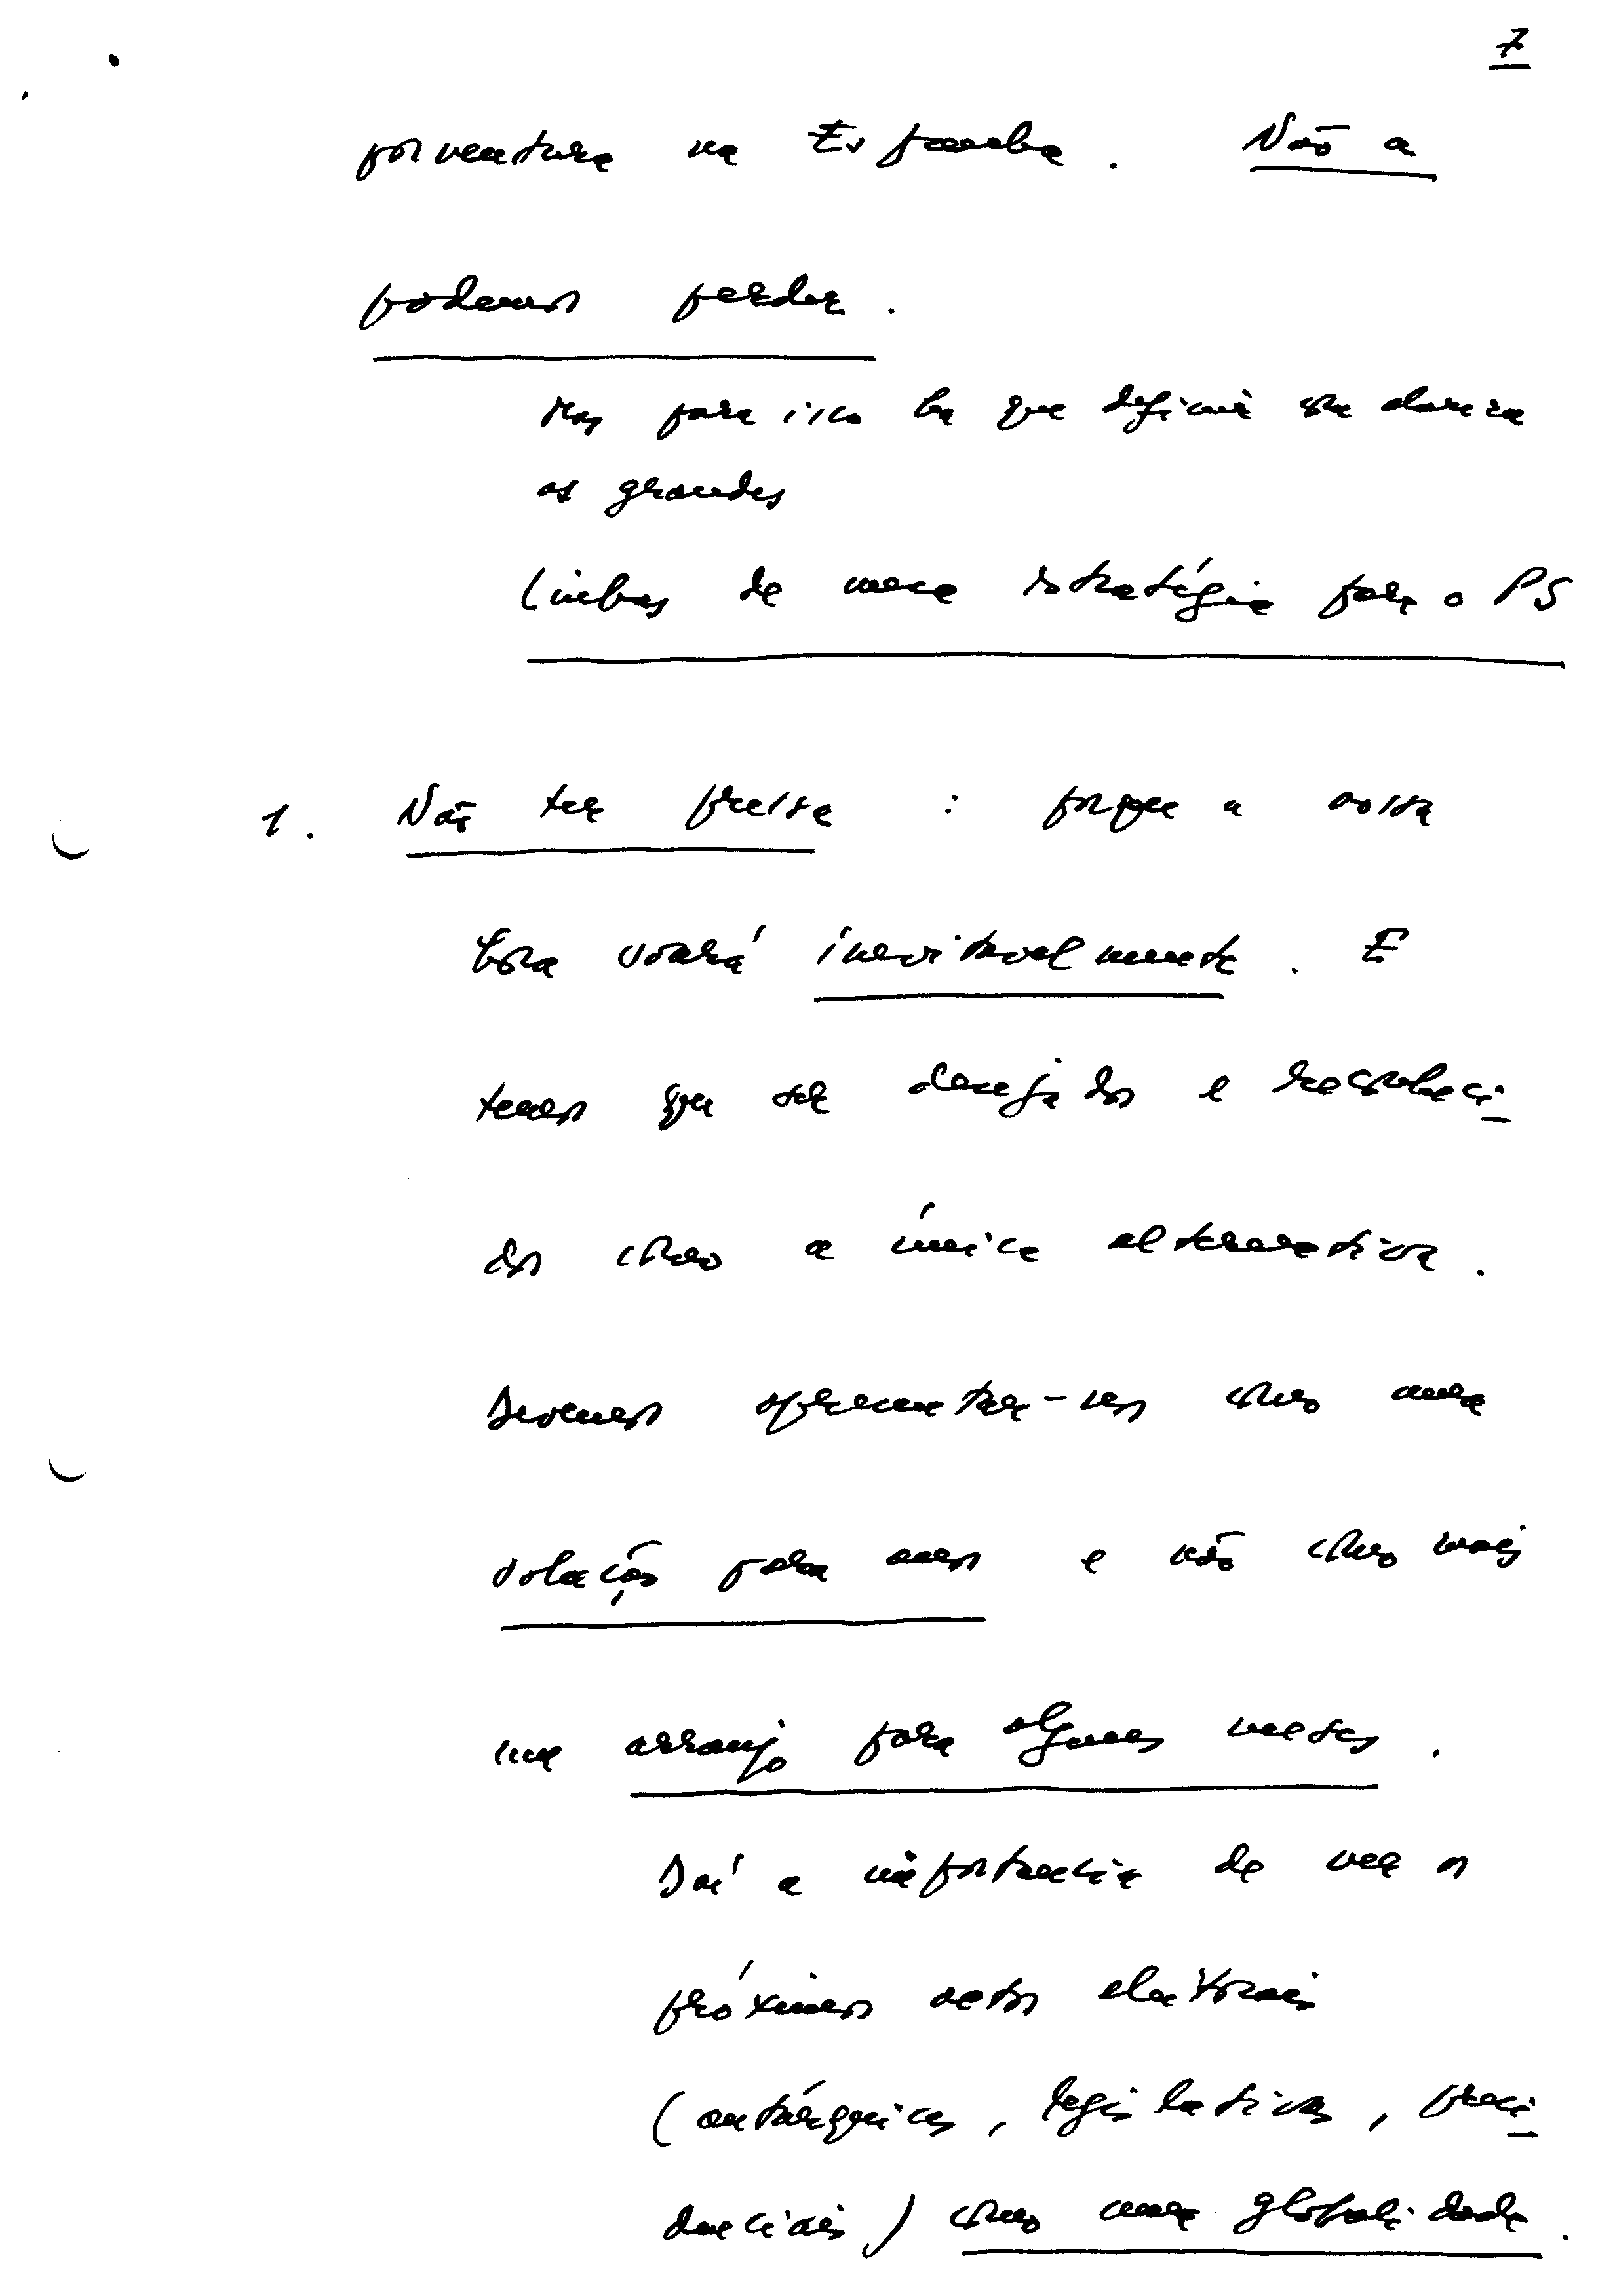 7
porventura na Espanha. Não a
podemos perder.
Mas para isso há que definir com clareza
as grandes
linhas de uma estratégia para o PS
1. Não ter pressa : porque a nossa
hora soará inevitavelmente. E
temos que ser desejados e reconheci
dos como a única alternativa.
Devemos apresentar-nos como uma
solução para anos e não como mais
um arranjo para alguns meses.
Daí a importância de ver os
próximos actos eleitorais
(autárquicas, legislativas, presi
denciais) como uma globalidade.